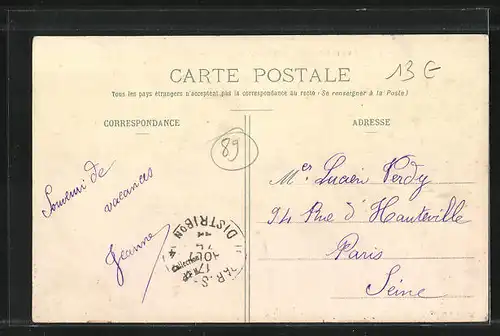 CARTE POSTALE
13 E
Tous les pays étrangers n'acceptent pas la correspondance au recto (Se renseigner à la Poste)
CORRESPONDANCE
ADRESSE
89
Souvenir de
vacances
Jeanne
Mer Lucien Verdy
94 Rue d'Hauteville
Paris
Seine
DISTRIBON